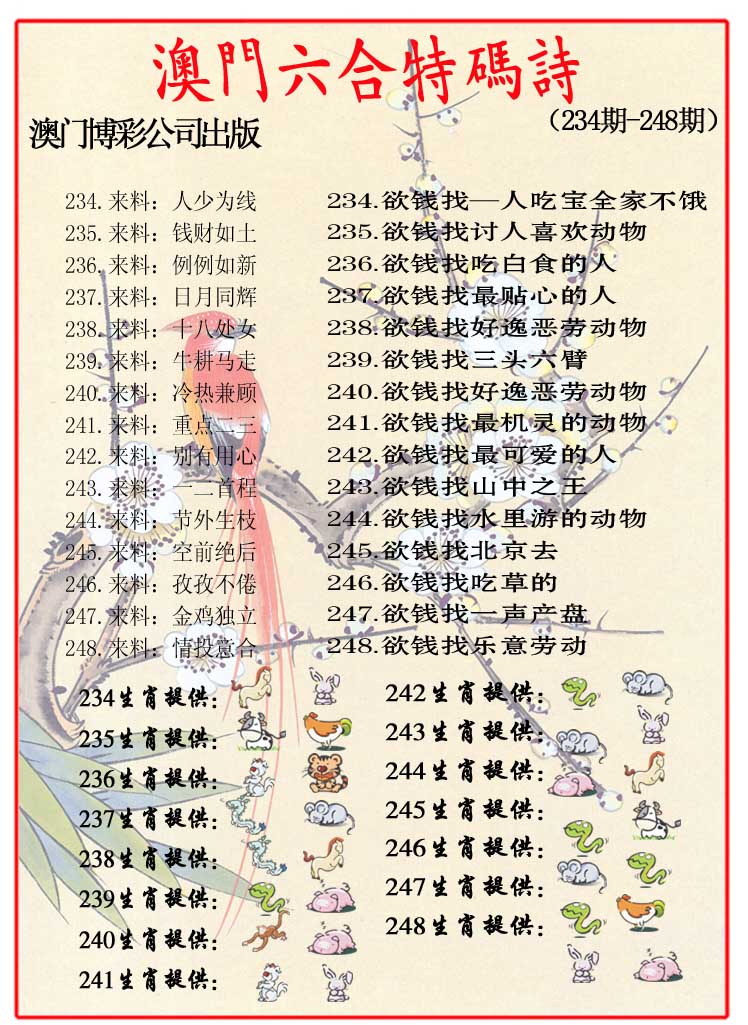 澳門六合特碼詩
澳门博彩公司出版
（234期-248期）
234.来料：人少为线 234.欲钱找一人吃宝全家不饿
235.来料：钱财如土 235.欲钱找讨人喜欢动物
236.来料：例例如新 236.欲钱找吃白食的人
237.来料：日月同辉 237.欲钱找最贴心的人
238.来料：十八处女 238.欲钱找好逸恶劳动物
239.来料：牛耕马走 239.欲钱找三头六臂
240.来料：冷热兼顾 240.欲钱找好逸恶劳动物
241.来料：重点二三 241.欲钱找最机灵的动物
242.来料：别有用心 242.欲钱找最可爱的人
243.来料：一二首程 243.欲钱找山中之王
244.来料：节外生枝 244.欲钱找水里游的动物
245.来料：空前绝后 245.欲钱找北京去
246.来料：孜孜不倦 246.欲钱找吃草的
247.来料：金鸡独立 247.欲钱找一声产盘
248.来料：情投意合 248.欲钱找乐意劳动
234生肖提供：
235生肖提供：
236生肖提供：
237生肖提供：
238生肖提供：
239生肖提供：
240生肖提供：
241生肖提供：
242生肖提供：
243生肖提供：
244生肖提供：
245生肖提供：
246生肖提供：
247生肖提供：
248生肖提供：